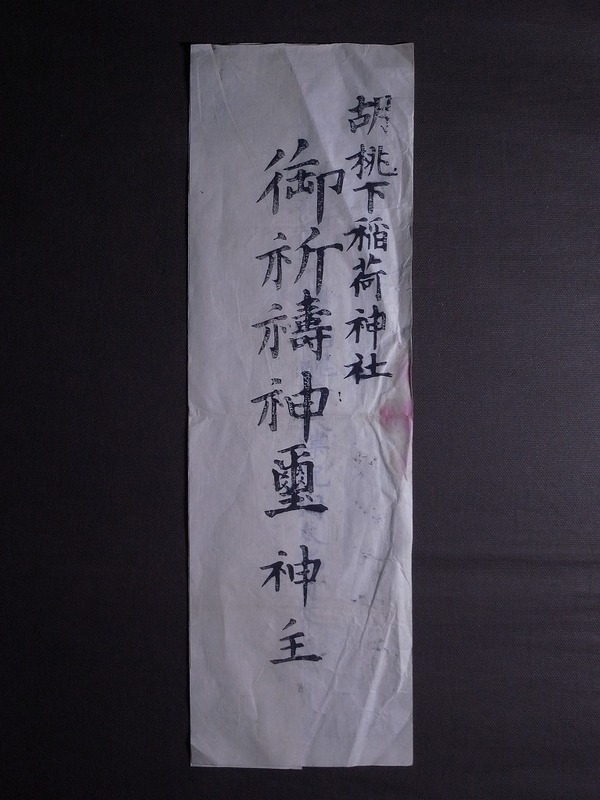 胡桃下稲荷神社
御祈禱神璽 神主